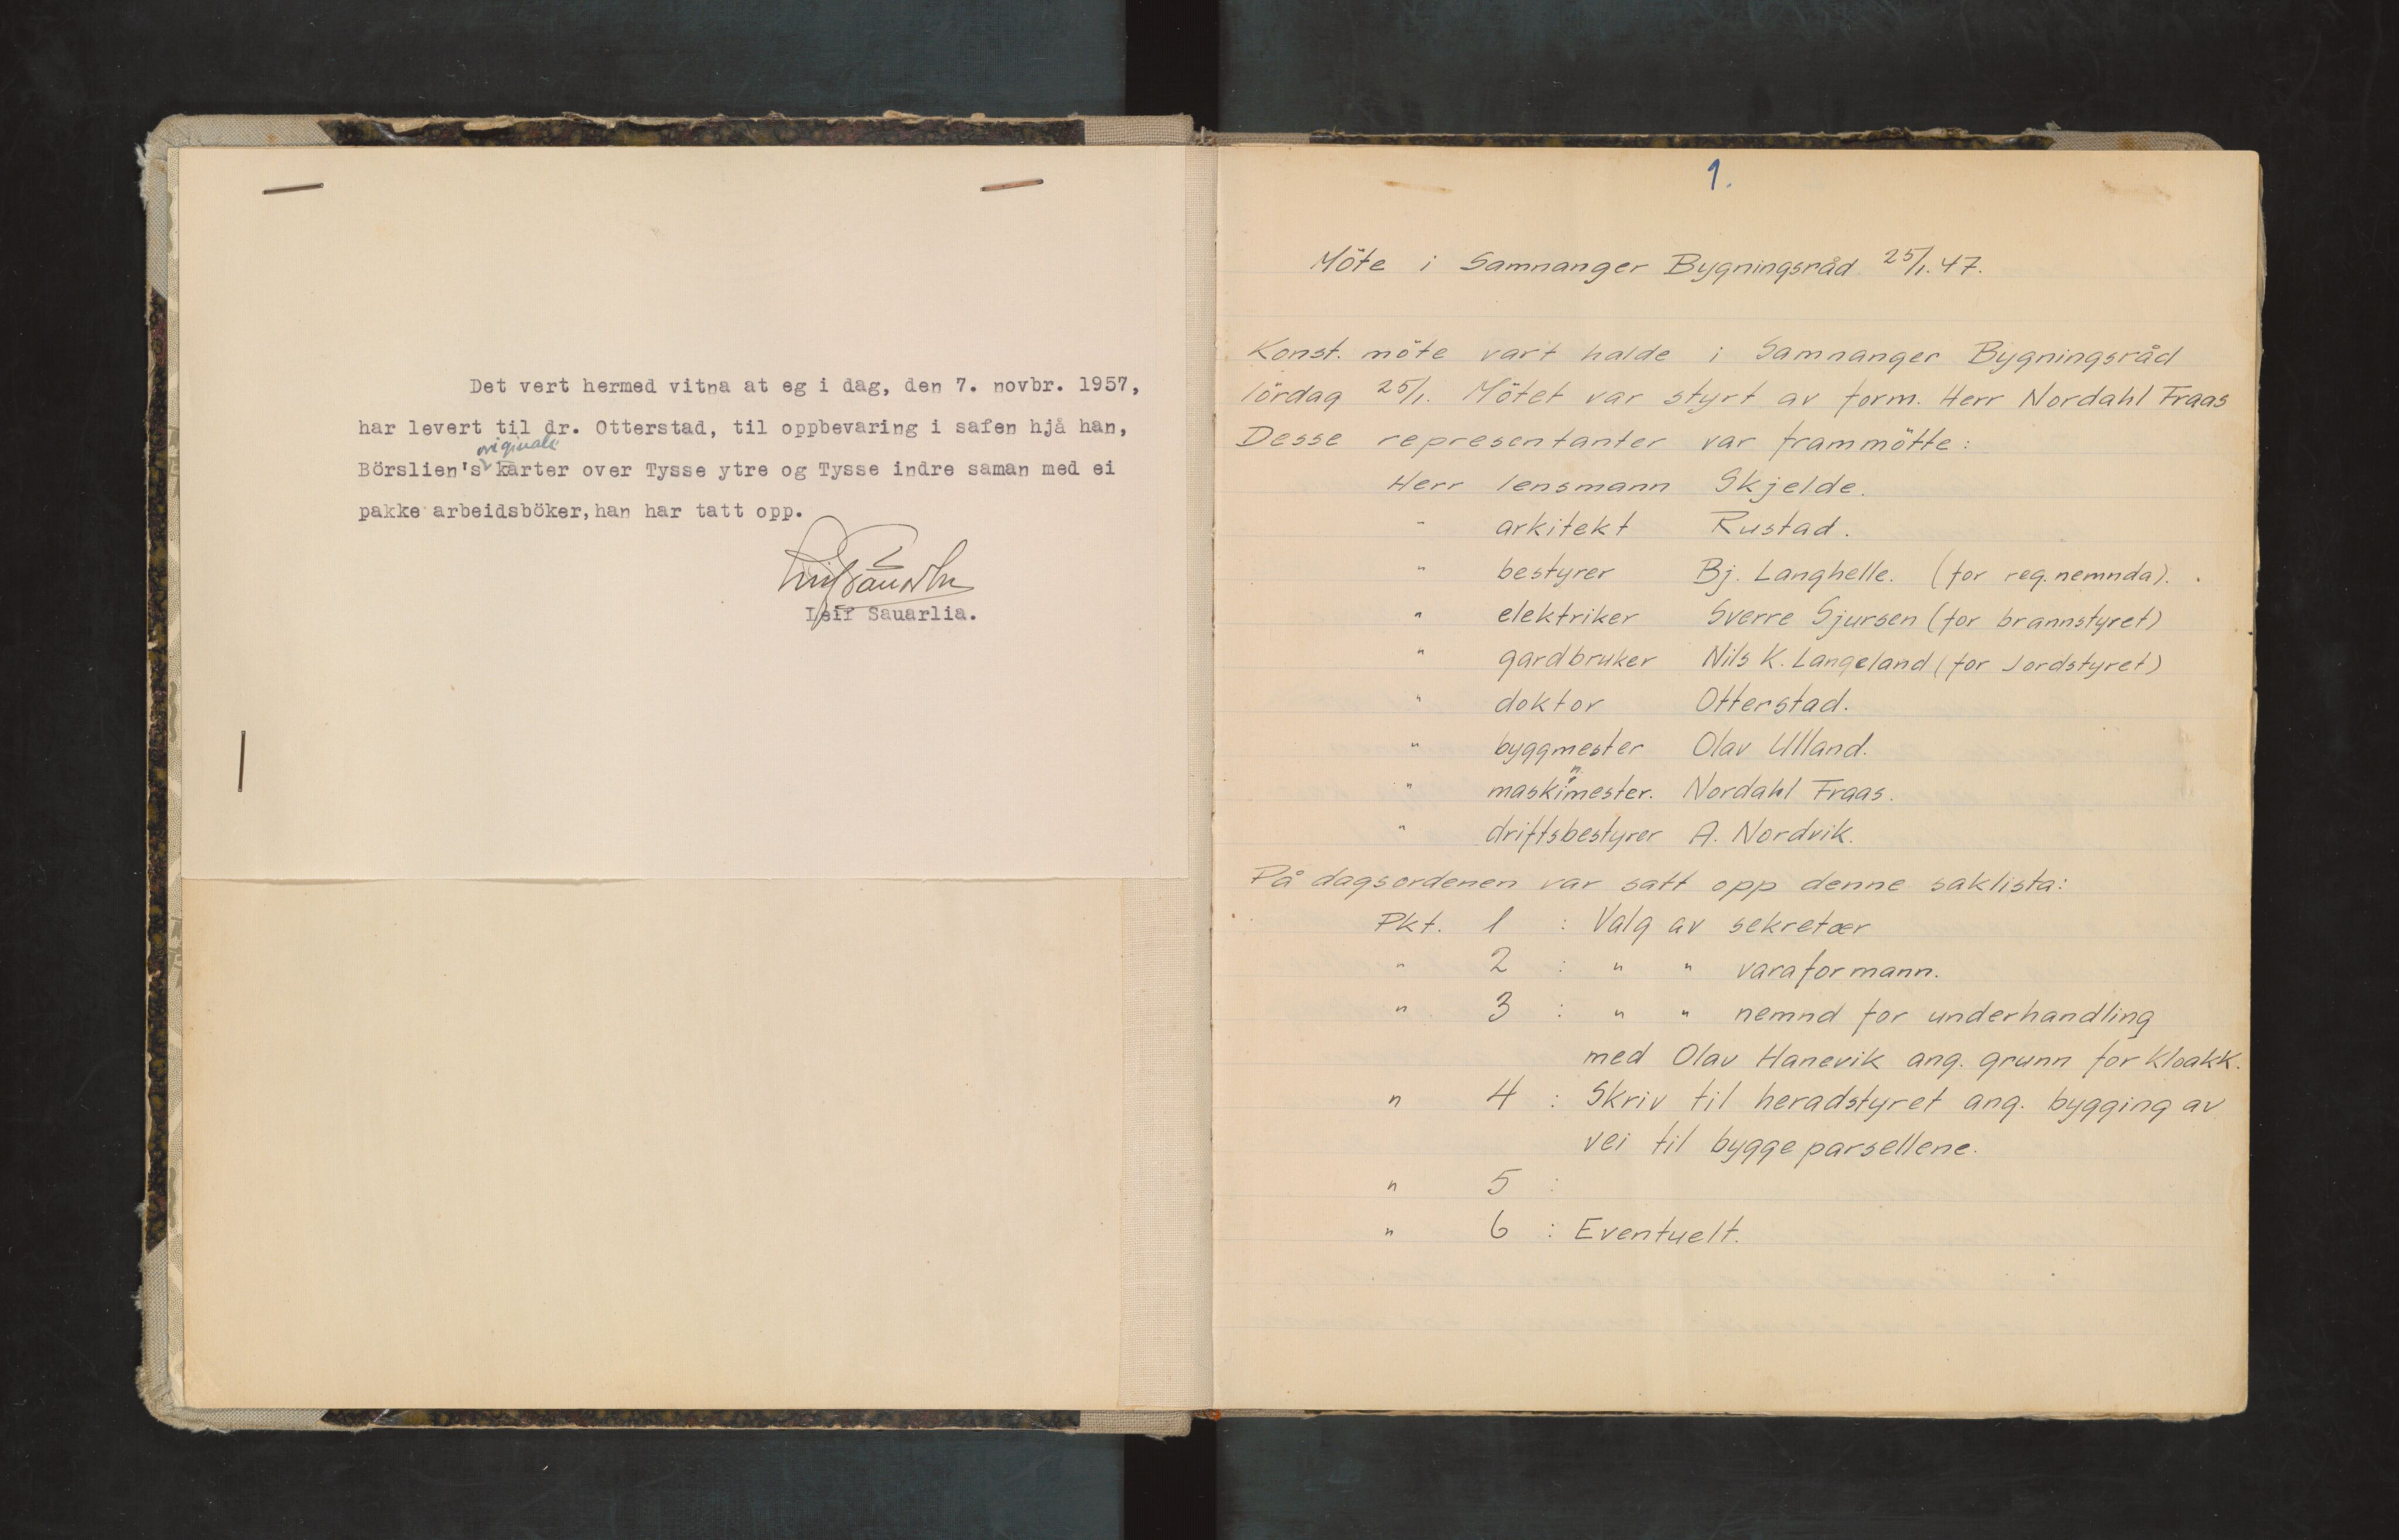 Det vert hermed vitna at eg i dag, den 7. novbr. 1957,
har levert til dr. Otterstad, til oppbevaring i safen hjå han,
originale
Börslien's karter over Tysse ytre og Tysse indre saman med ei
pakke arbeidsböker, han har tatt opp.
Leif Sauarlia
Leif Sauarlia.
1.
Möte i Samnanger Bygningsråd 25/1.47.
Konst. möte vart halde i Samnanger Bygningsråd
lördag 25/1. Mötet var styrt av form. Herr Nordahl Fraas
Desse representanter var frammötte:
Herr lensmann Skjelde.
" arkitekt Rustad.
" bestyrer Bj. Langhelle. (for reg. nemnda).
" elektriker Sverre Sjursen (for brannstyret)
" gardbruker Nils K. Langeland (for Jordstyret)
" doktor Otterstad.
" byggmester Olav Ulland.
" maskinmester. Nordahl Fraas.
" driftsbestyrer A. Nordvik.
På dagsordenen var satt opp denne saklista:
Pkt. 1 : Valg av sekretær
" 2 : " " varaformann.
" 3 : " " nemnd for underhandling
med Olav Hanevik ang. grunn for kloakk.
" 4 : Skriv til heradstyret ang. bygging av
vei til byggeparsellene.
" 5 :
" 6 : Eventuelt.